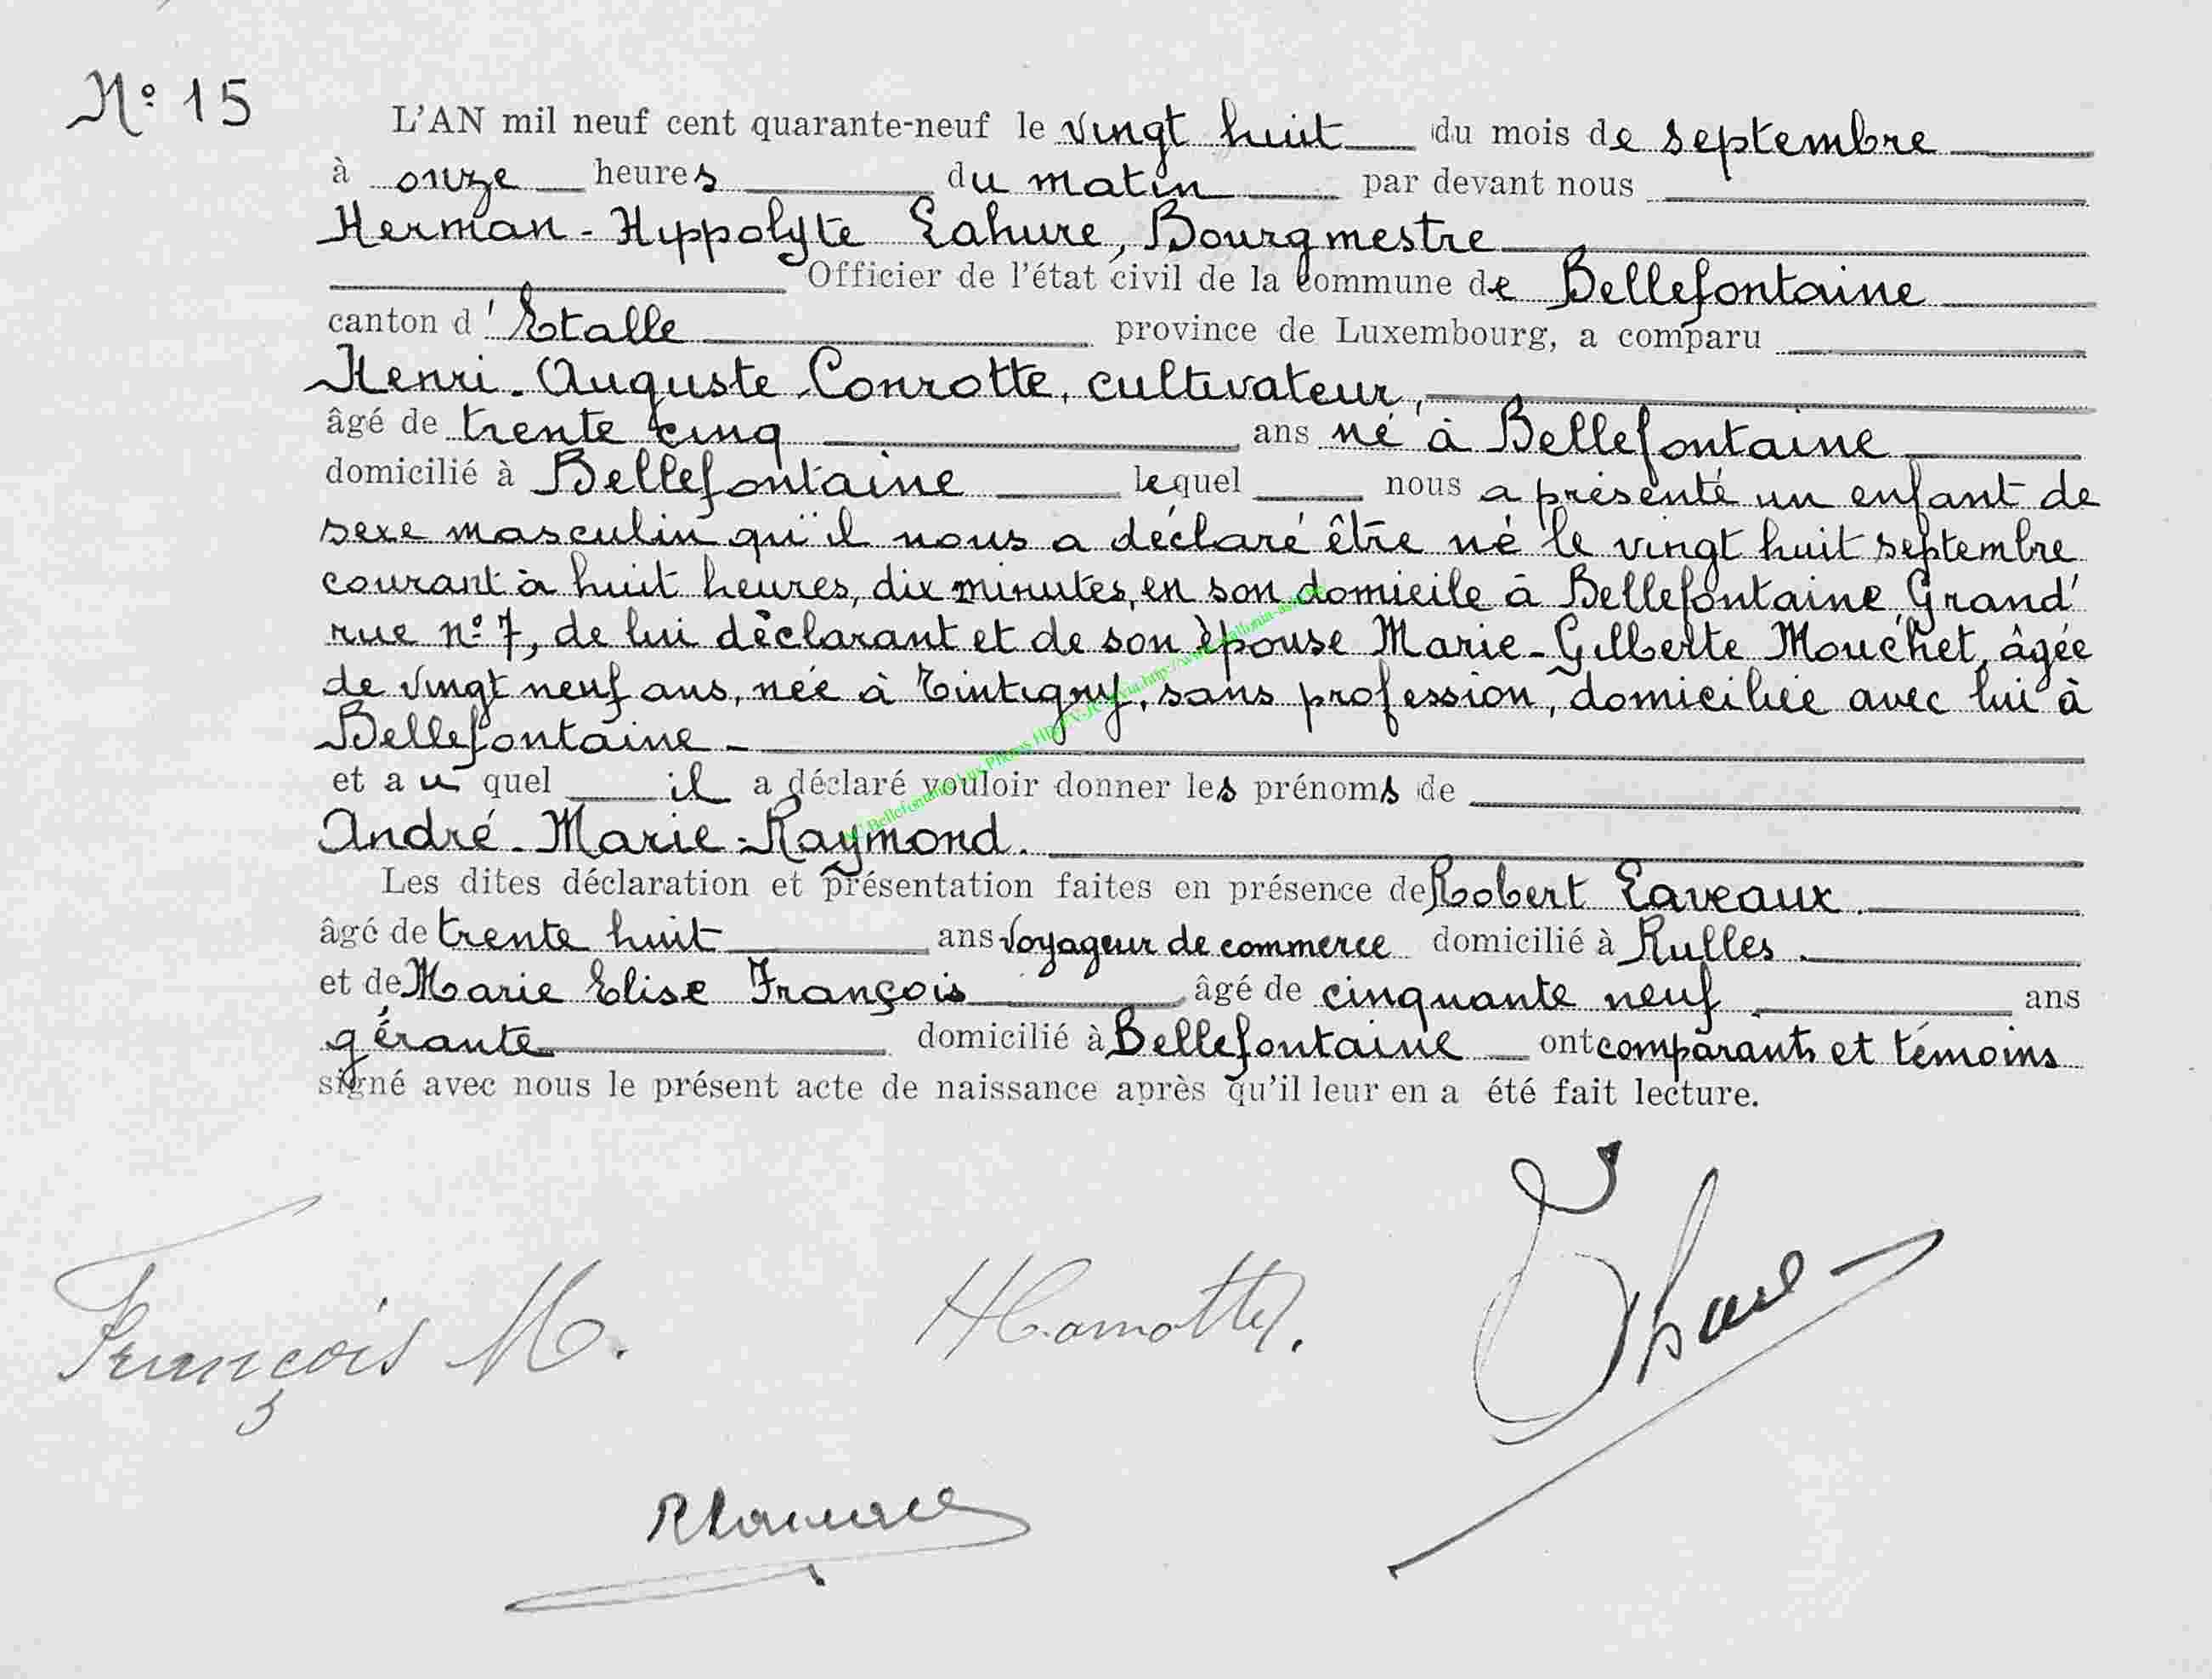 N° 15
L'AN mil neuf cent quarante-neuf le vingt huit du mois de septembre
à onze heures du matin par devant nous
Herman-Hippolyte Lahure, Bourgmestre
Officier de l'état civil de la commune de Bellefontaine
canton d'Etalle province de Luxembourg, a comparu
Henri-Auguste Conrotte, cultivateur,
âgé de trente cinq ans né à Bellefontaine
domicilié à Bellefontaine lequel nous a présenté un enfant de
sexe masculin qu'il nous a déclaré être né le vingt huit septembre
courant à huit heures, dix minutes, en son domicile à Bellefontaine Grand'
rue n° 7, de lui déclarant et de son épouse Marie-Gilberte Mouchet, âgée
de vingt neuf ans, née à Tintigny, sans profession, domiciliée avec lui à
Bellefontaine -
et au quel il a déclaré vouloir donner les prénoms de
André-Marie-Raymond.
Les dites déclaration et présentation faites en présence de Robert Laveaux.
âgé de trente huit ans voyageur de commerce domicilié à Rulles.
et de Marie Elise François âgé de cinquante neuf ans
gérante domicilié à Bellefontaine ont comparants et témoins
signé avec nous le présent acte de naissance après qu'il leur en a été fait lecture.
François M.